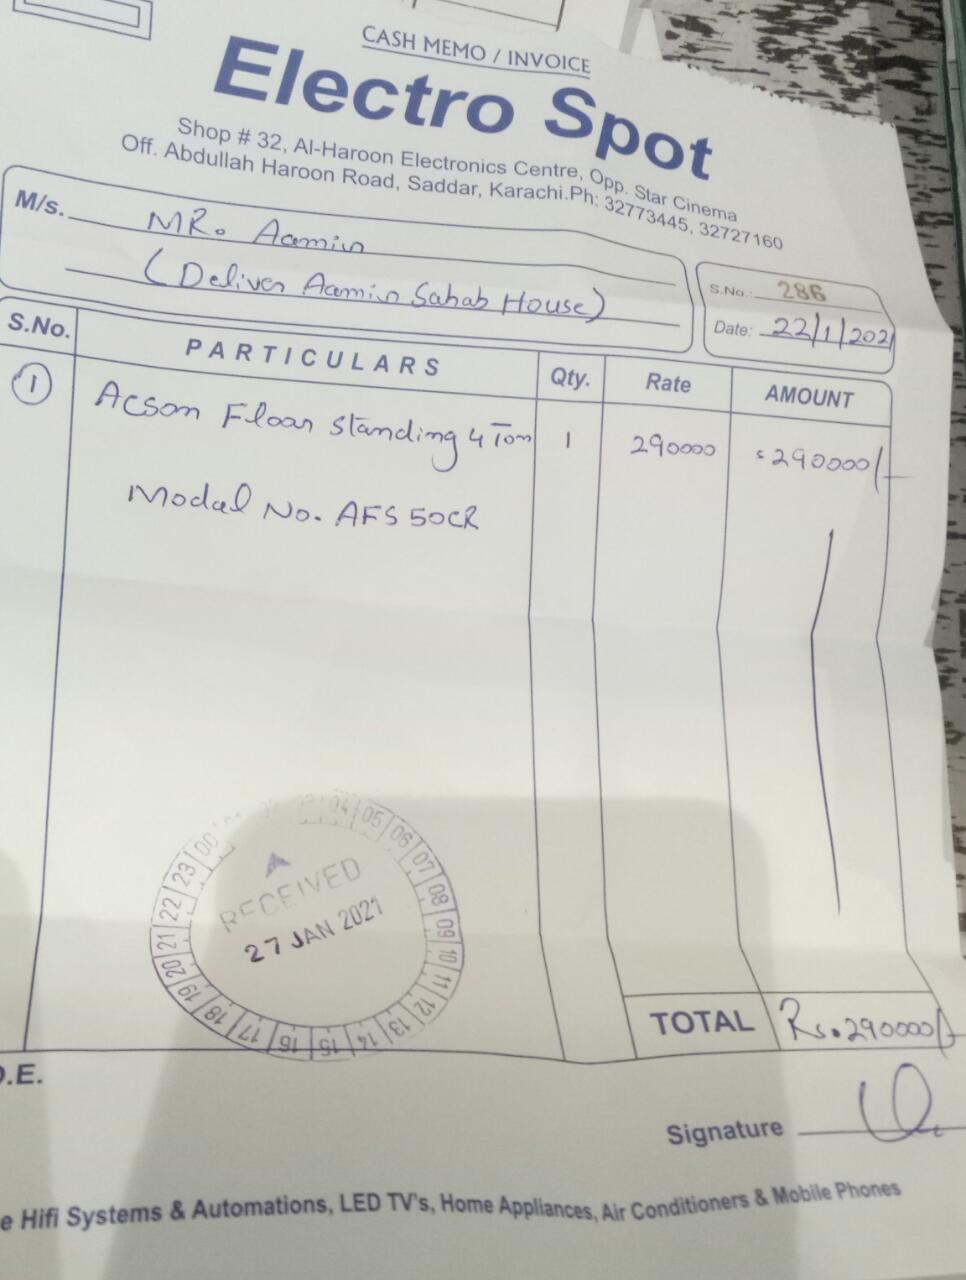 CASH MEMO / INVOICE
Electro Spot
Shop # 32, Al-Haroon Electronics Centre, Opp. Star Cinema
Off. Abdullah Haroon Road, Saddar, Karachi.Ph: 32773445, 32727160
M/s. MR. Aamir
(Deliver Aamir Sahab House)
S.No.: 286
Date: 22/1/2021
S.No. PARTICULARS Qty. Rate AMOUNT
1 Acson Floor Standing 4 Ton 1 290000 290000/-
Modal No. AFS 50CR
04 05 06 07 08 09 10 11 12 13 14 15 16 17 18 19 20 21 22 23 00
RECEIVED
27 JAN 2021
TOTAL Rs. 290000/-
.E.
Signature
e Hifi Systems & Automations, LED TV's, Home Appliances, Air Conditioners & Mobile Phones